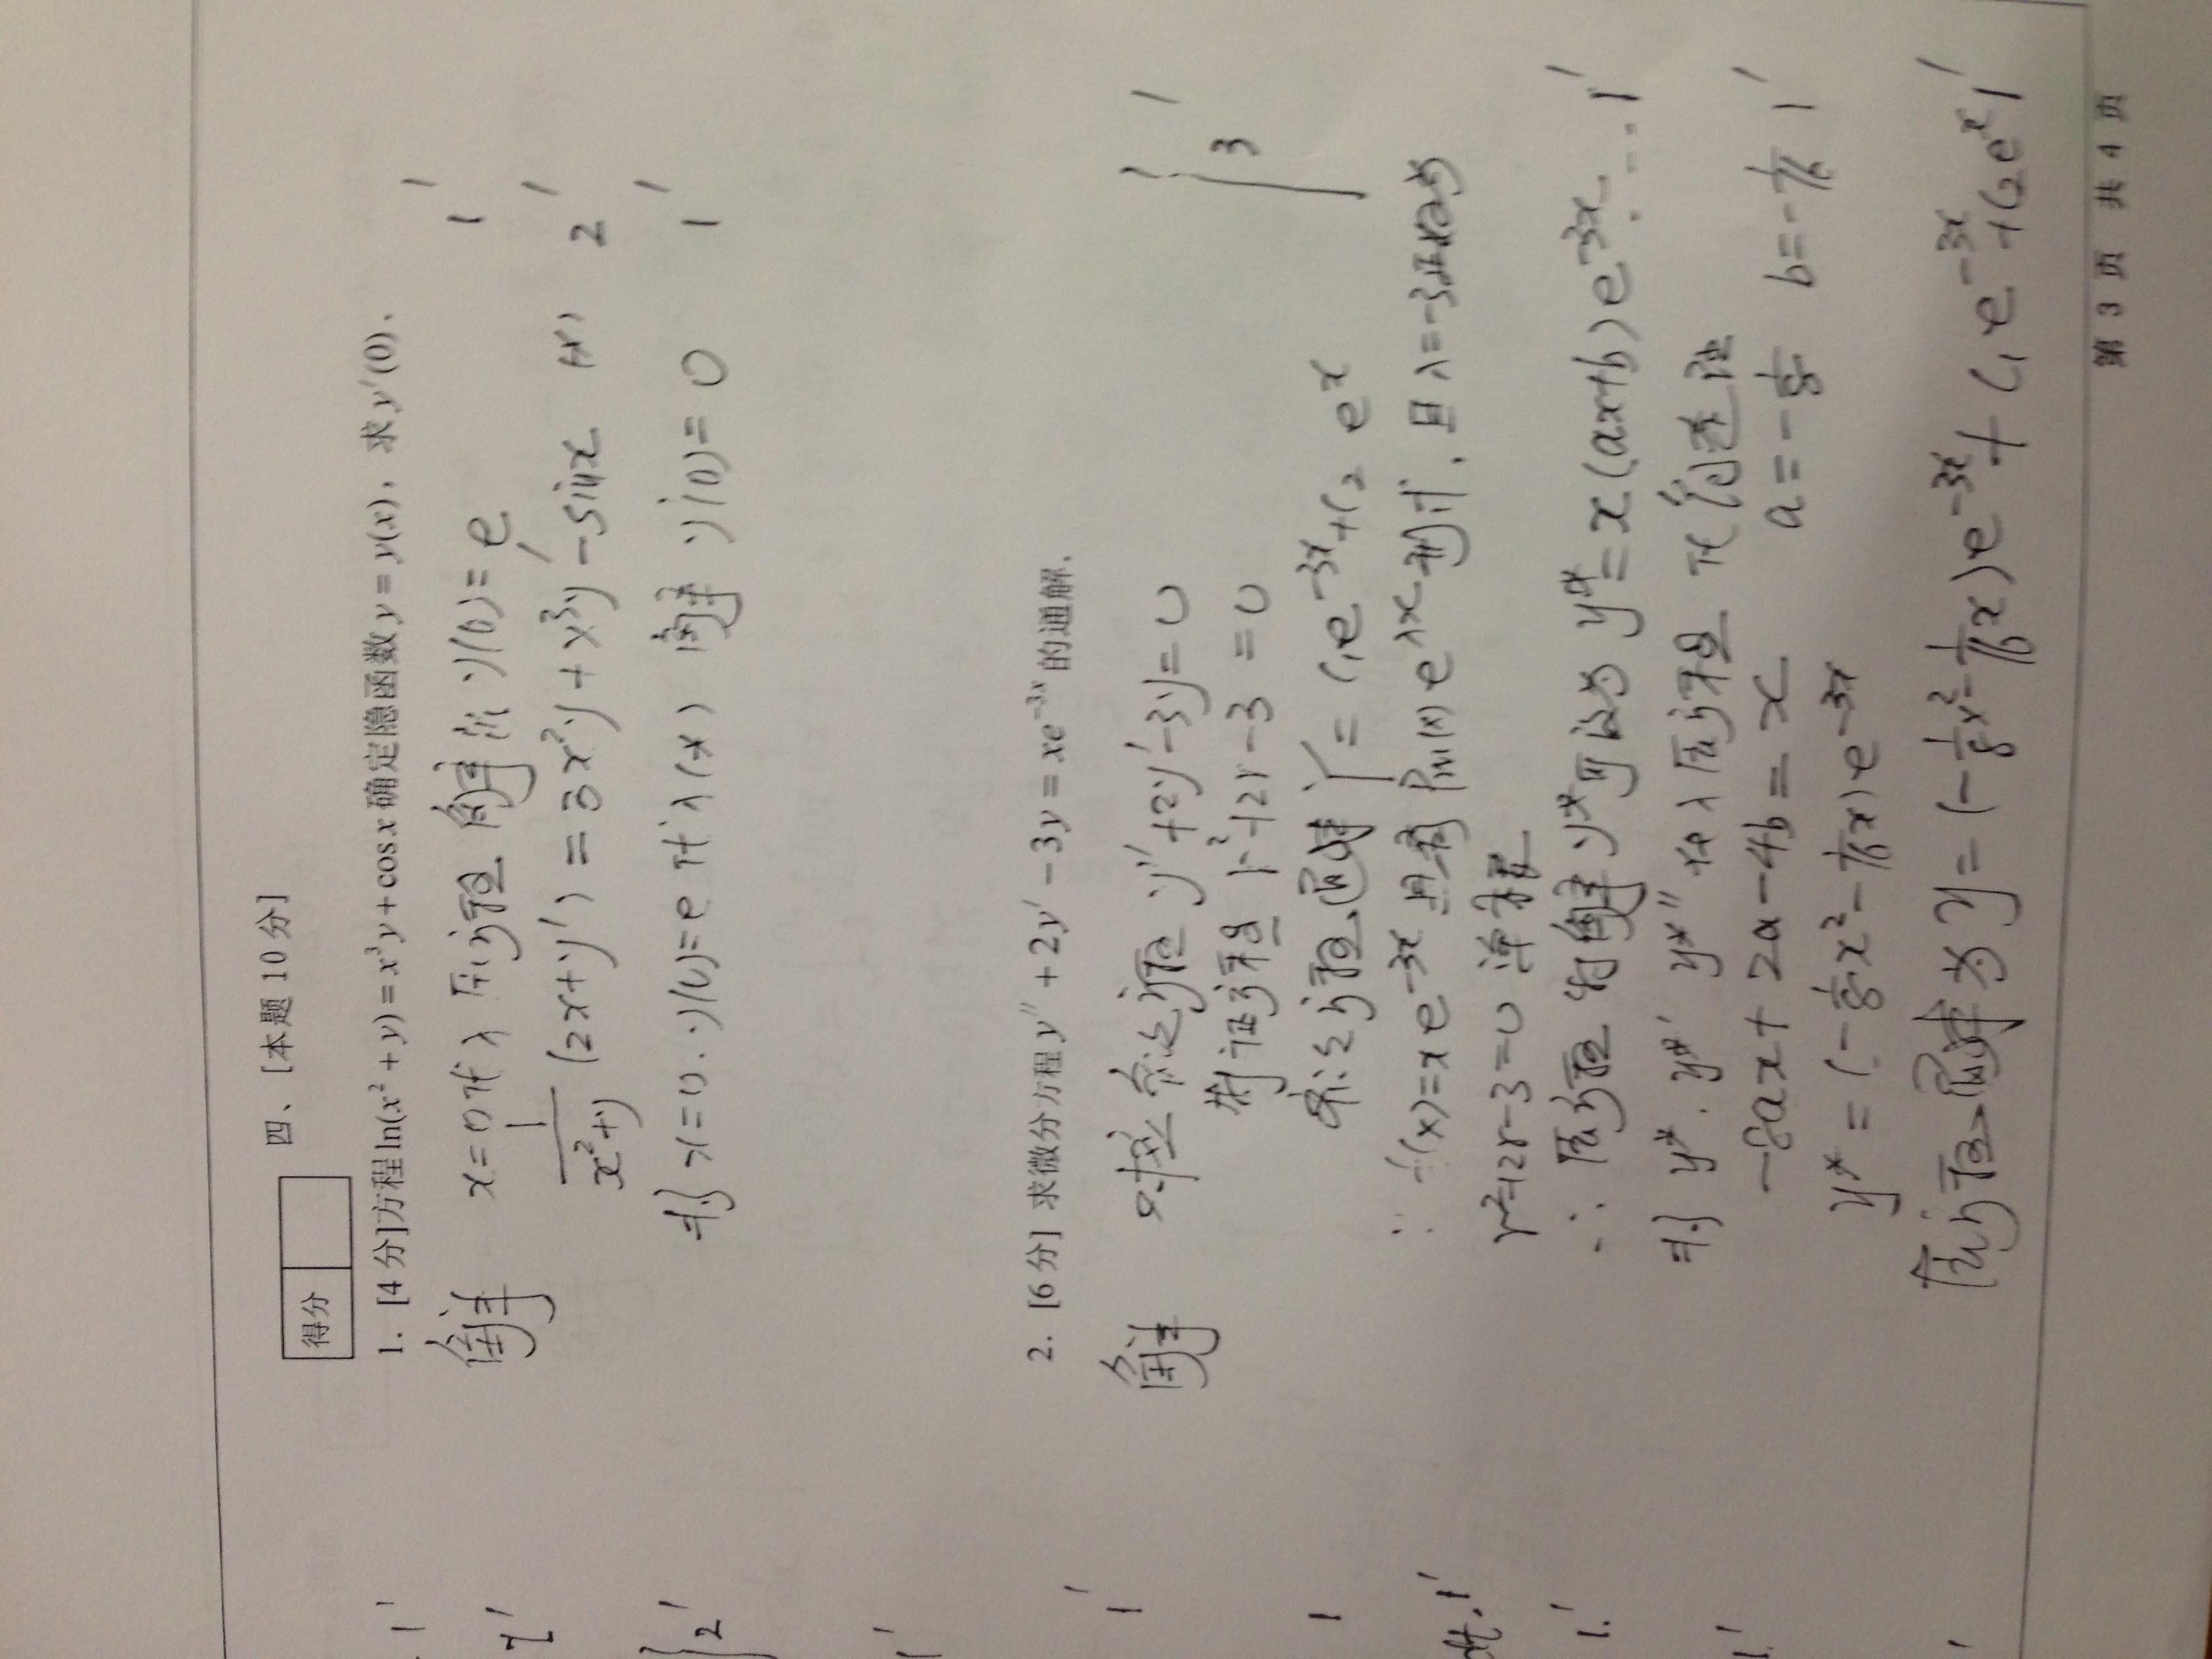 四、[本题 10 分]
得分
1. [4 分]方程 ln(x² + y) = x³y + cos x 确定隐函数 y = y(x)，求 y′(0).
解 x=0代入原方程 解得 y(0)=e 1′
1/(x²+y) (2x+y′) = 3x²y + x³y′ - sinx (*) 2′
将 x=0. y(0)=e 代入(*) 解 y′(0)=0 1′
2. [6 分] 求微分方程 y″ + 2y′ − 3y = xe^(−3x) 的通解.
解 对应齐次方程 y″+2y′-3y=0
特征方程 r²+2r-3=0 3′
齐次方程通解 Y = C₁e^(-3x)+C₂ e^x
∵ f(x)=xe^(-3x) 具有 Pm(x)e^(λx) 形式, 且 λ=-3
r²+2r-3=0 单根
∴ 原方程特解 y*可设为 y*=x(ax+b)e^(-3x) ... 1′
将 y*. y*′ y*″ 代入原方程 化简
-8ax+2a-4b=x a=-1/8 b=-1/16 1′
y* = (-1/8x²-1/16x)e^(-3x)
原方程通解为 y=(-1/8x²-1/16x)e^(-3x)+C₁e^(-3x)+C₂e^x 1′
第 3 页 共 4 页